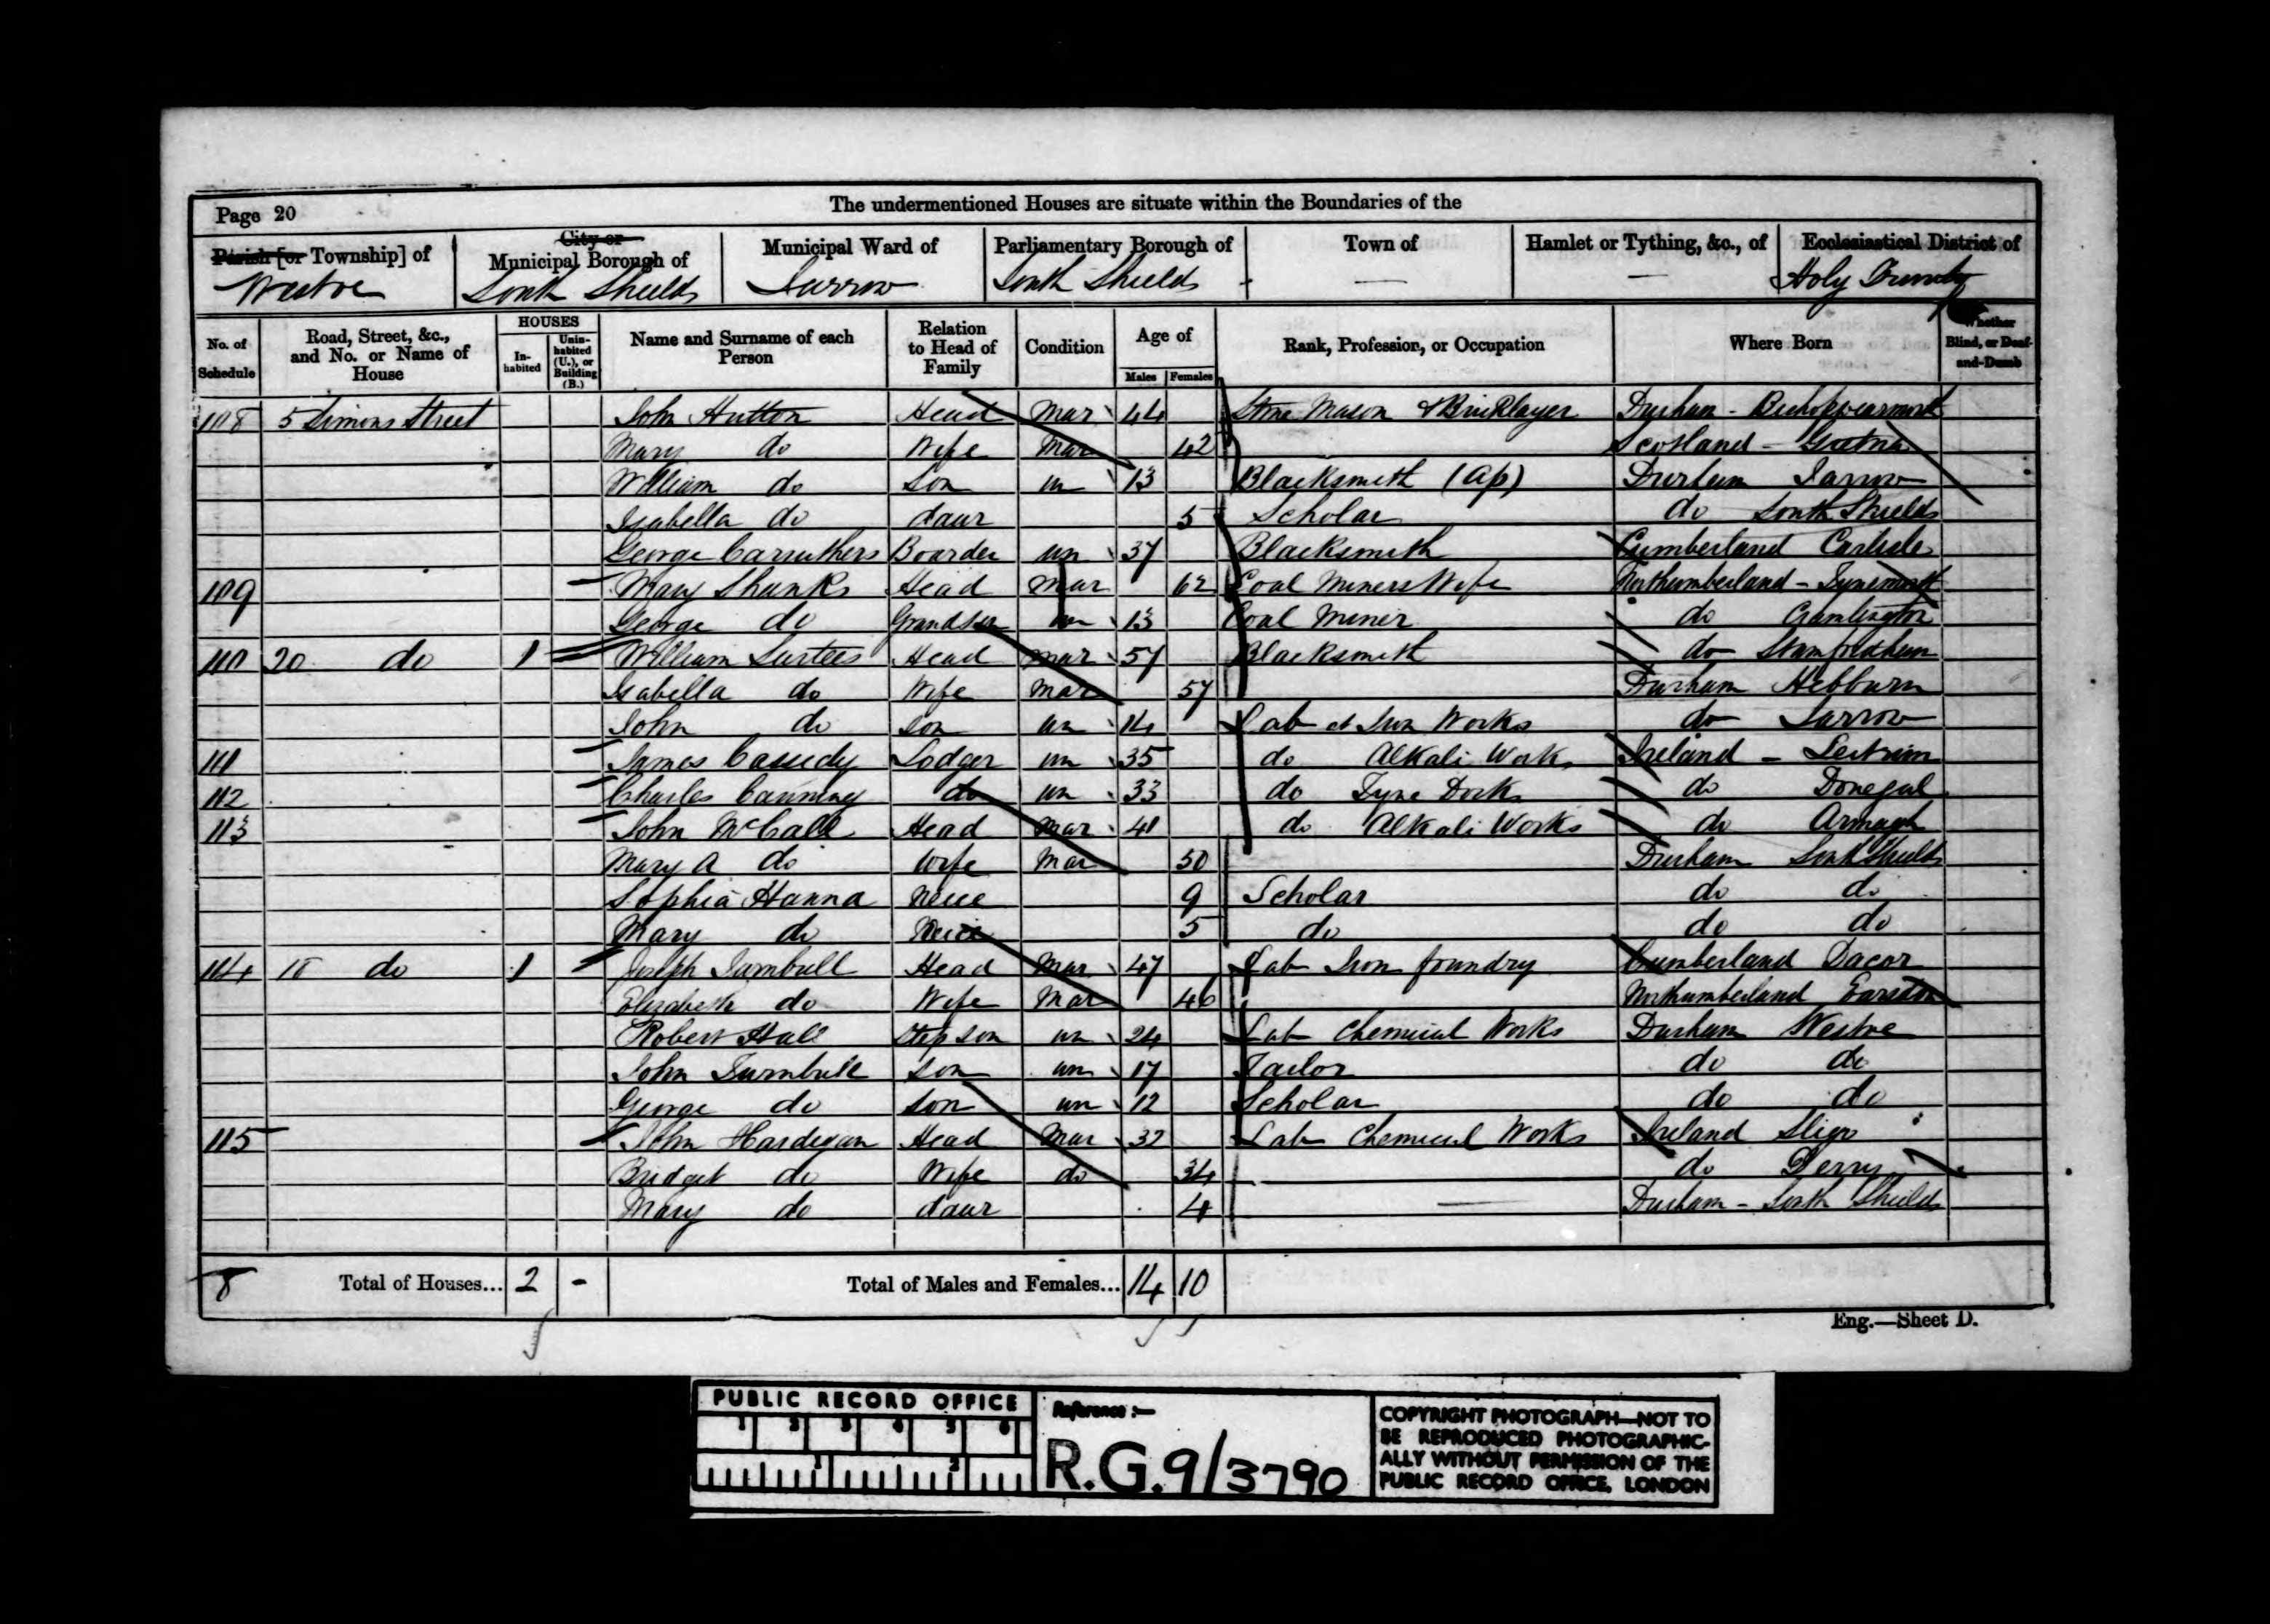 Page 20
The undermentioned Houses are situate within the Boundaries of the
Parish [or Township] of
City or Municipal Borough of
Municipal Ward of
Parliamentary Borough of
Town of
Hamlet or Tything, &c., of
Ecclesiastical District of
Westoe South Shields Jarrow South Shields — — Holy Trinity
No. of Schedule
Road, Street, &c., and No. or Name of House
HOUSES
In-habited
Unin-habited (U.), or Building (B.)
Name and Surname of each Person
Relation to Head of Family
Condition
Age of
Males Females
Rank, Profession, or Occupation
Where Born
Whether Blind, or Deaf-and-Dumb
108 5 Simons Street John Hutton Head Mar 44 Stone Mason & Bricklayer Durham - Bishopwearmouth
Mary do Wife Mar 42 Scotland - Gretna
William do Son un 13 Blacksmith (Ap) Durham Jarrow
Isabella do daur 5 Scholar do South Shields
George Carruthers Boarder un 37 Blacksmith Cumberland Carlisle
109 Mary Shanks Head Mar 62 Coal Miners Wife Northumberland - Tynemouth
George do Grandson un 13 Coal Miner do Cramlington
110 20 do 1 William Surtees Head Mar 57 Blacksmith do Stamfordham
Isabella do Wife Mar 57 Durham Hebburn
John do Son un 14 Lab at Iron Works do Jarrow
111 James Cassedy Lodger un 35 do Alkali Work Ireland - Leitrim
112 Charles Canning do un 33 do Tyne Docks do Donegal
113 John McCall Head Mar 41 do Alkali Works do Armagh
Mary A do Wife Mar 50 Durham South Shields
Sophia Hanna Niece 9 Scholar do do
Mary do Neice 5 do do do
114 18 do 1 Joseph Turnbull Head Mar 47 Lab Iron foundry Cumberland Dacor
Elizabeth do Wife Mar 46 Northumberland Earsdon
Robert Hall Step son un 24 Lab Chemical Works Durham Westoe
John Turnbull Son un 17 Tailor do do
George do Son un 12 Scholar do do
115 John Hardigan Head Mar 32 Lab Chemical Works Ireland Sligo
Bridget do Wife do 34 do Derry
Mary do daur 4 — Durham - South Shields
8 Total of Houses... 2 - Total of Males and Females... 14 10
Eng.—Sheet D.
PUBLIC RECORD OFFICE
1 2 3 4 5 6
1 2
Reference :—
R.G.9/3790
COPYRIGHT PHOTOGRAPH—NOT TO
BE REPRODUCED PHOTOGRAPHIC-
ALLY WITHOUT PERMISSION OF THE
PUBLIC RECORD OFFICE, LONDON